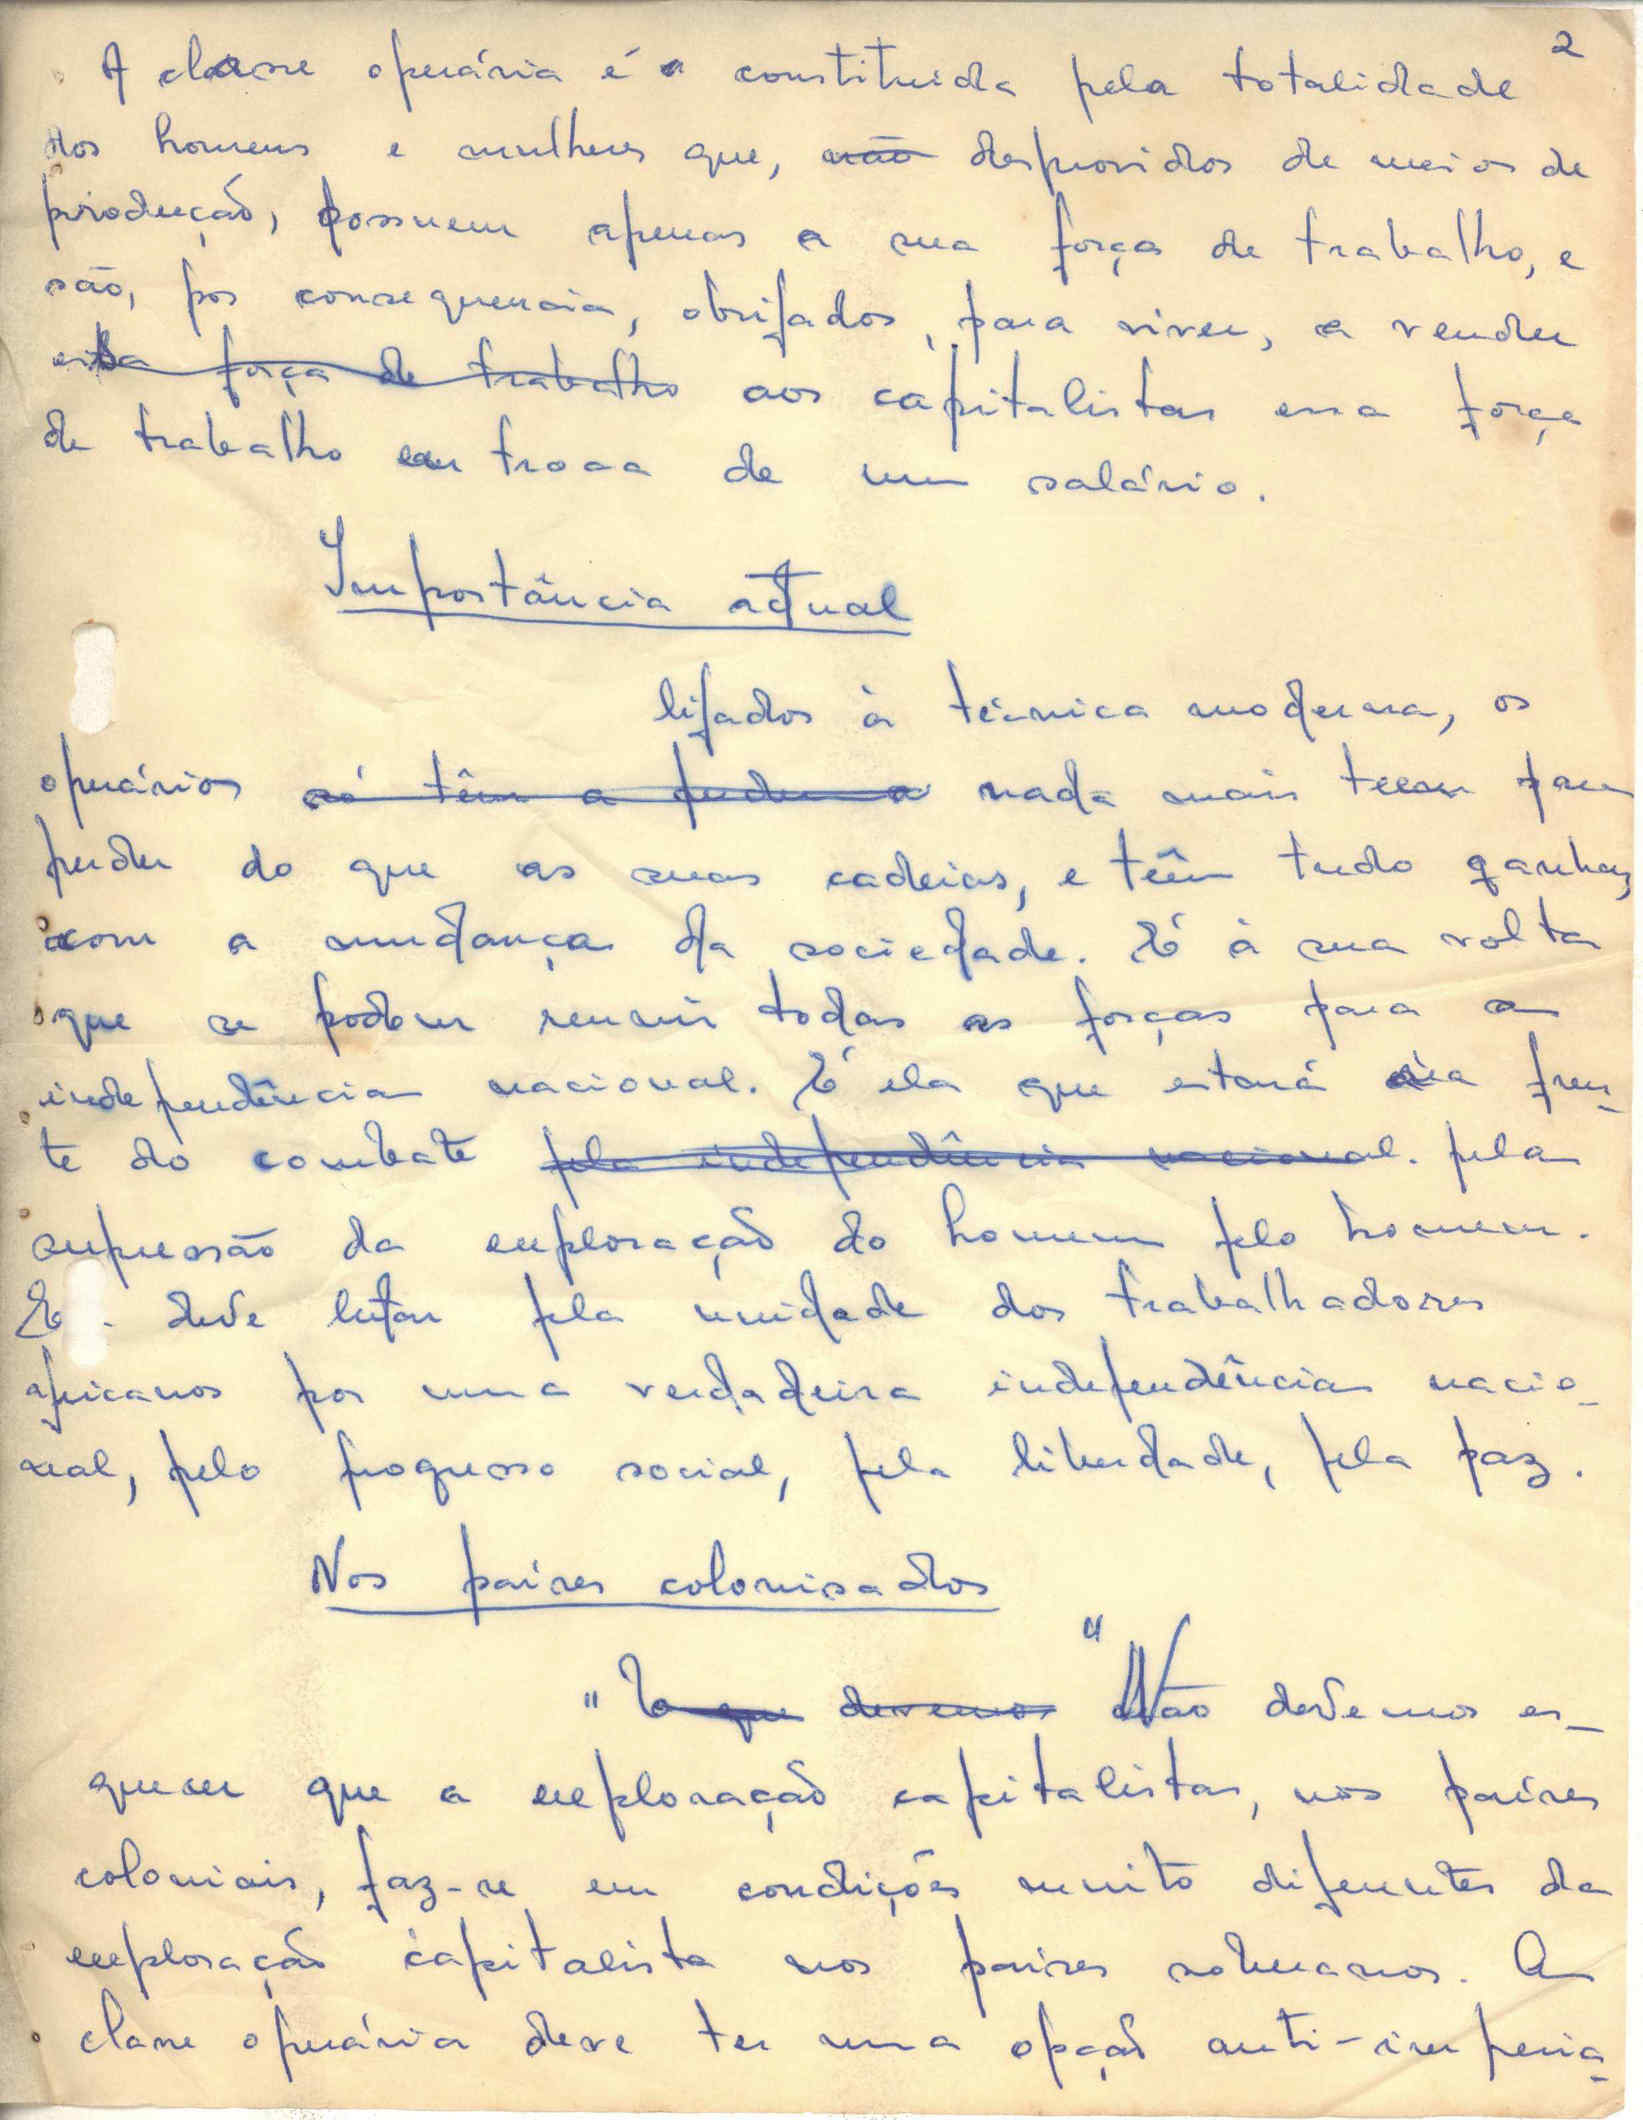 2
A classe operária é a constituida pela totalidade
dos homens e mulheres que, não desprovidos de meios de
produção, possuem apenas a sua força de trabalho, e
são, por consequencia, obrigados, para viver, a vender
essa força de trabalho aos capitalistas essa força
de trabalho em troca de um salário.
Importância actual
ligados à técnica moderna, os
operários só têm a perder a nada mais teem para
perder do que as suas cadeias, e têm tudo ganhar,
com a mudança da sociedade. É à sua volta
que se podem reunir todas as forças para a
independência nacional. É ela que estará na fren-
te do combate pela independência nacional. pela
supressão da exploração do homem pelo homem.
E deve lutar pela unidade dos trabalhadores
africanos por uma verdadeira independência nacio-
nal, pelo progresso social, pela liberdade, pela paz.
Nos países colonisados
" É que devemos " Não devemos es-
quecer que a exploração capitalista, nos países
coloniais, faz-se em condições muito diferentes da
exploração capitalista nos países soberanos. A
classe operária deve ter uma opção anti-imperia-